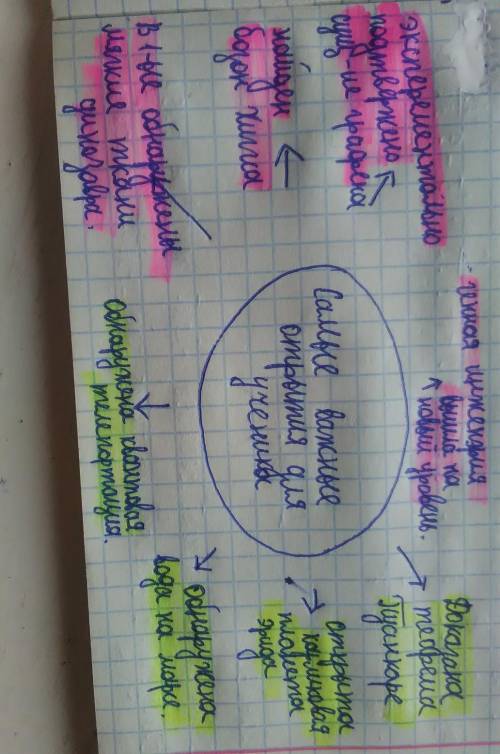 Самые важные
открытия для
ученика
эксперементально
подтверждено
сущ-ие графена
найден
бозон хиггса
В 1-ые обнаружены
мягкие ткани
динозавра.
обнаружена квантовая
телепортация.
обнаружена
вода на марсе.
открыта
карликовая
планета
эрида
Доказана
теорема
Пуанкаре
генная инженерия
вышла на
новый уровень.